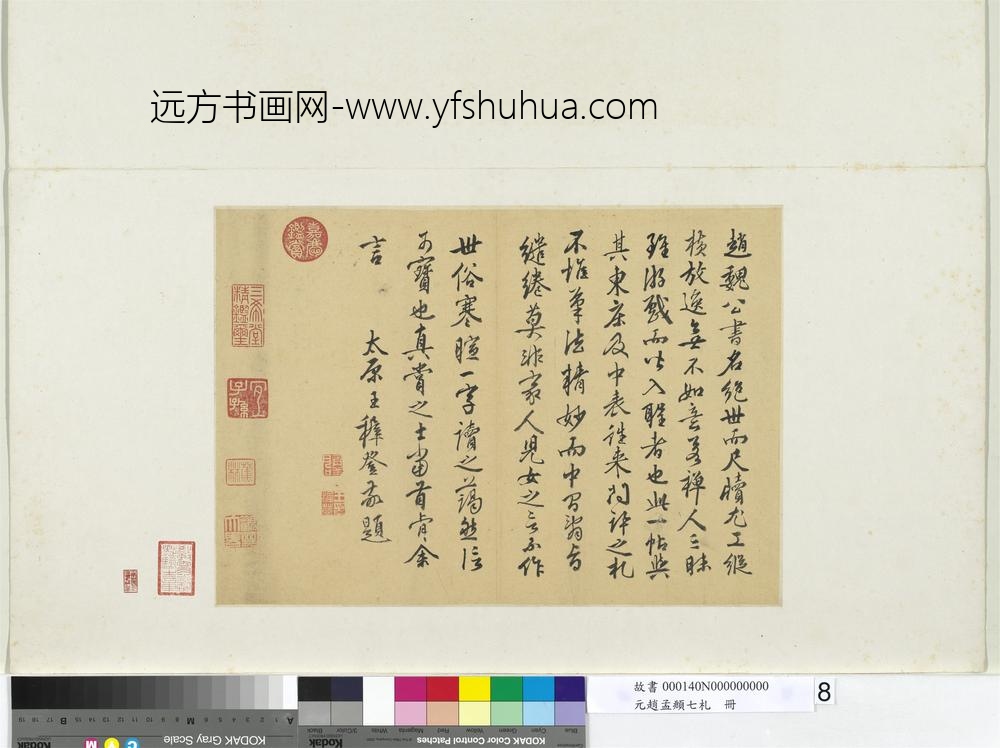 远方书画网-www.yfshuhua.com
趙魏公書名絕世而尺牘尤工縱
橫放逸無不如意若禪人三昧
雖游戲而皆入聖者也此一帖與
其東床及中表往來問訊之札
不惟筆法精妙而中間
繾綣莫非家人兒女之言不作
世俗寒暄一字讀之藹然信
可寶也真賞之士當首肯余
言
太原王穉登敬題
嘉慶鑑賞
三希堂精鑑璽
宜子孫
故書 000140N000000000
元趙孟頫七札 冊
8
KODAK Gray Scale
KODAK Color Control Patches
Blue
Cyan
Green
Yellow
Red
Magenta
White
3/Color
Black
A 1 2 3 4 5 6 M 8 9 10 11 12 13 14 15 B 17 18 19
Kodak